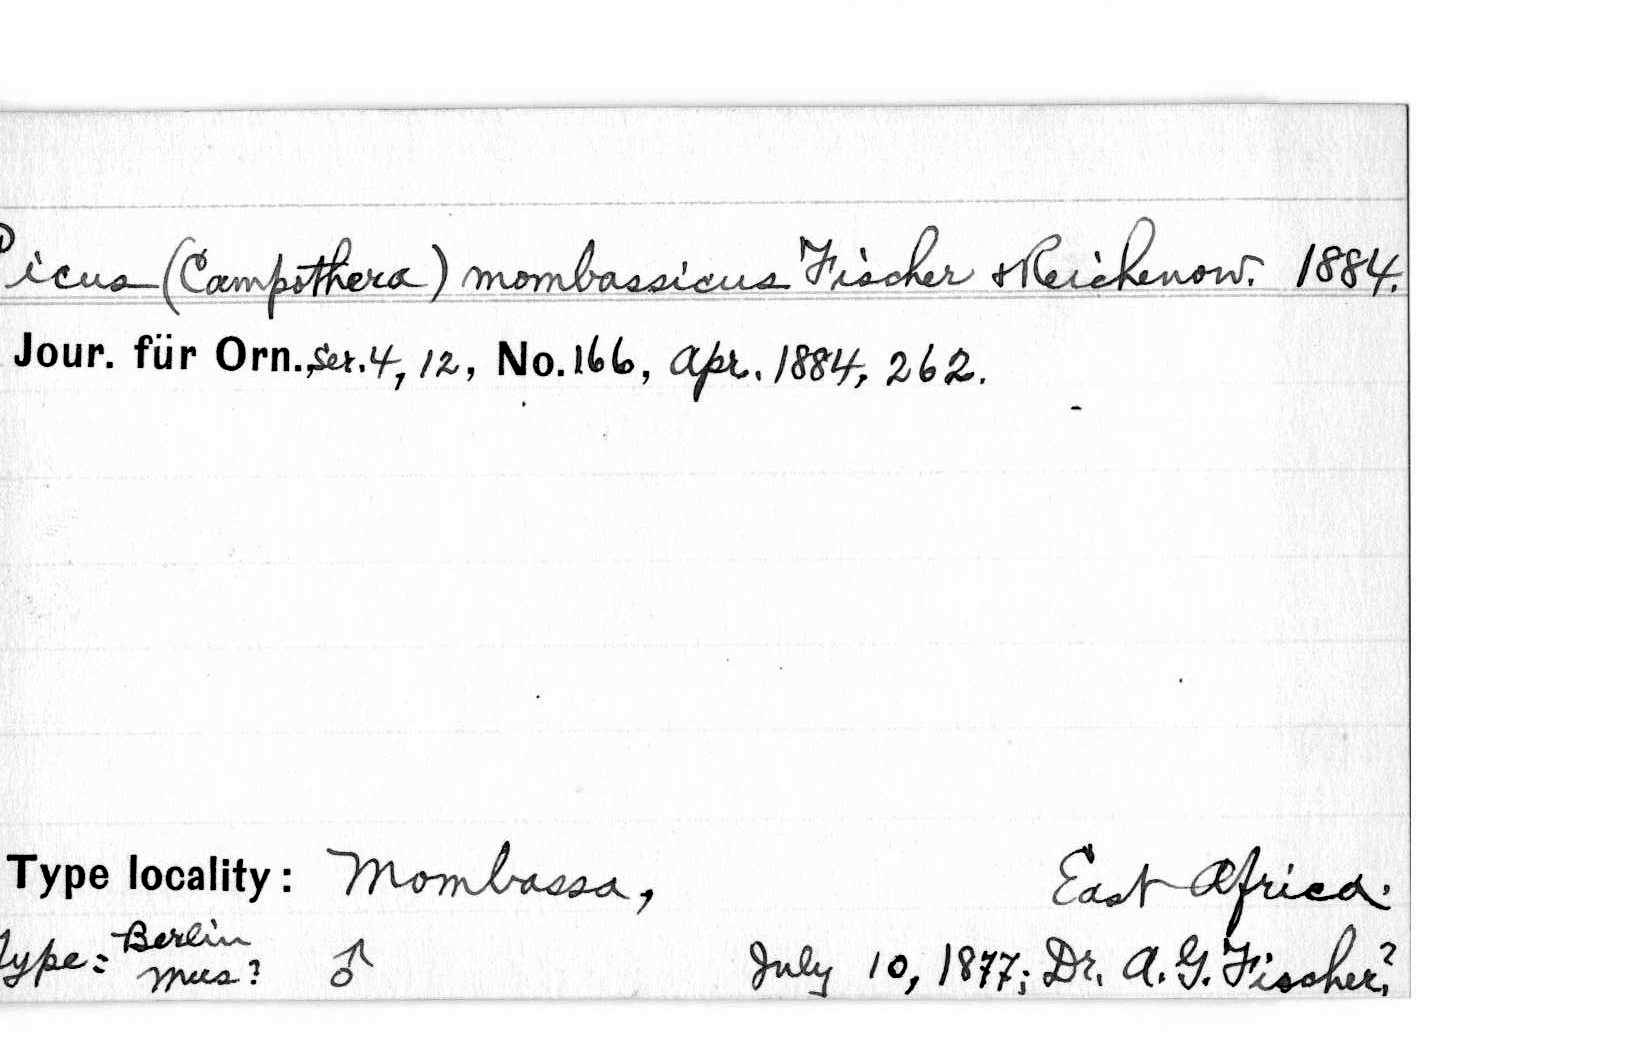 Picus (Campothera) mombassicus Fischer & Reichenow. 1884.
Jour. für Orn., Ser. 4, 12, No. 166, Apr. 1884, 262.
Type locality: Mombassa, East Africa.
Type: Berlin Mus? ♂ July 10, 1877; Dr. A. G. Fischer?